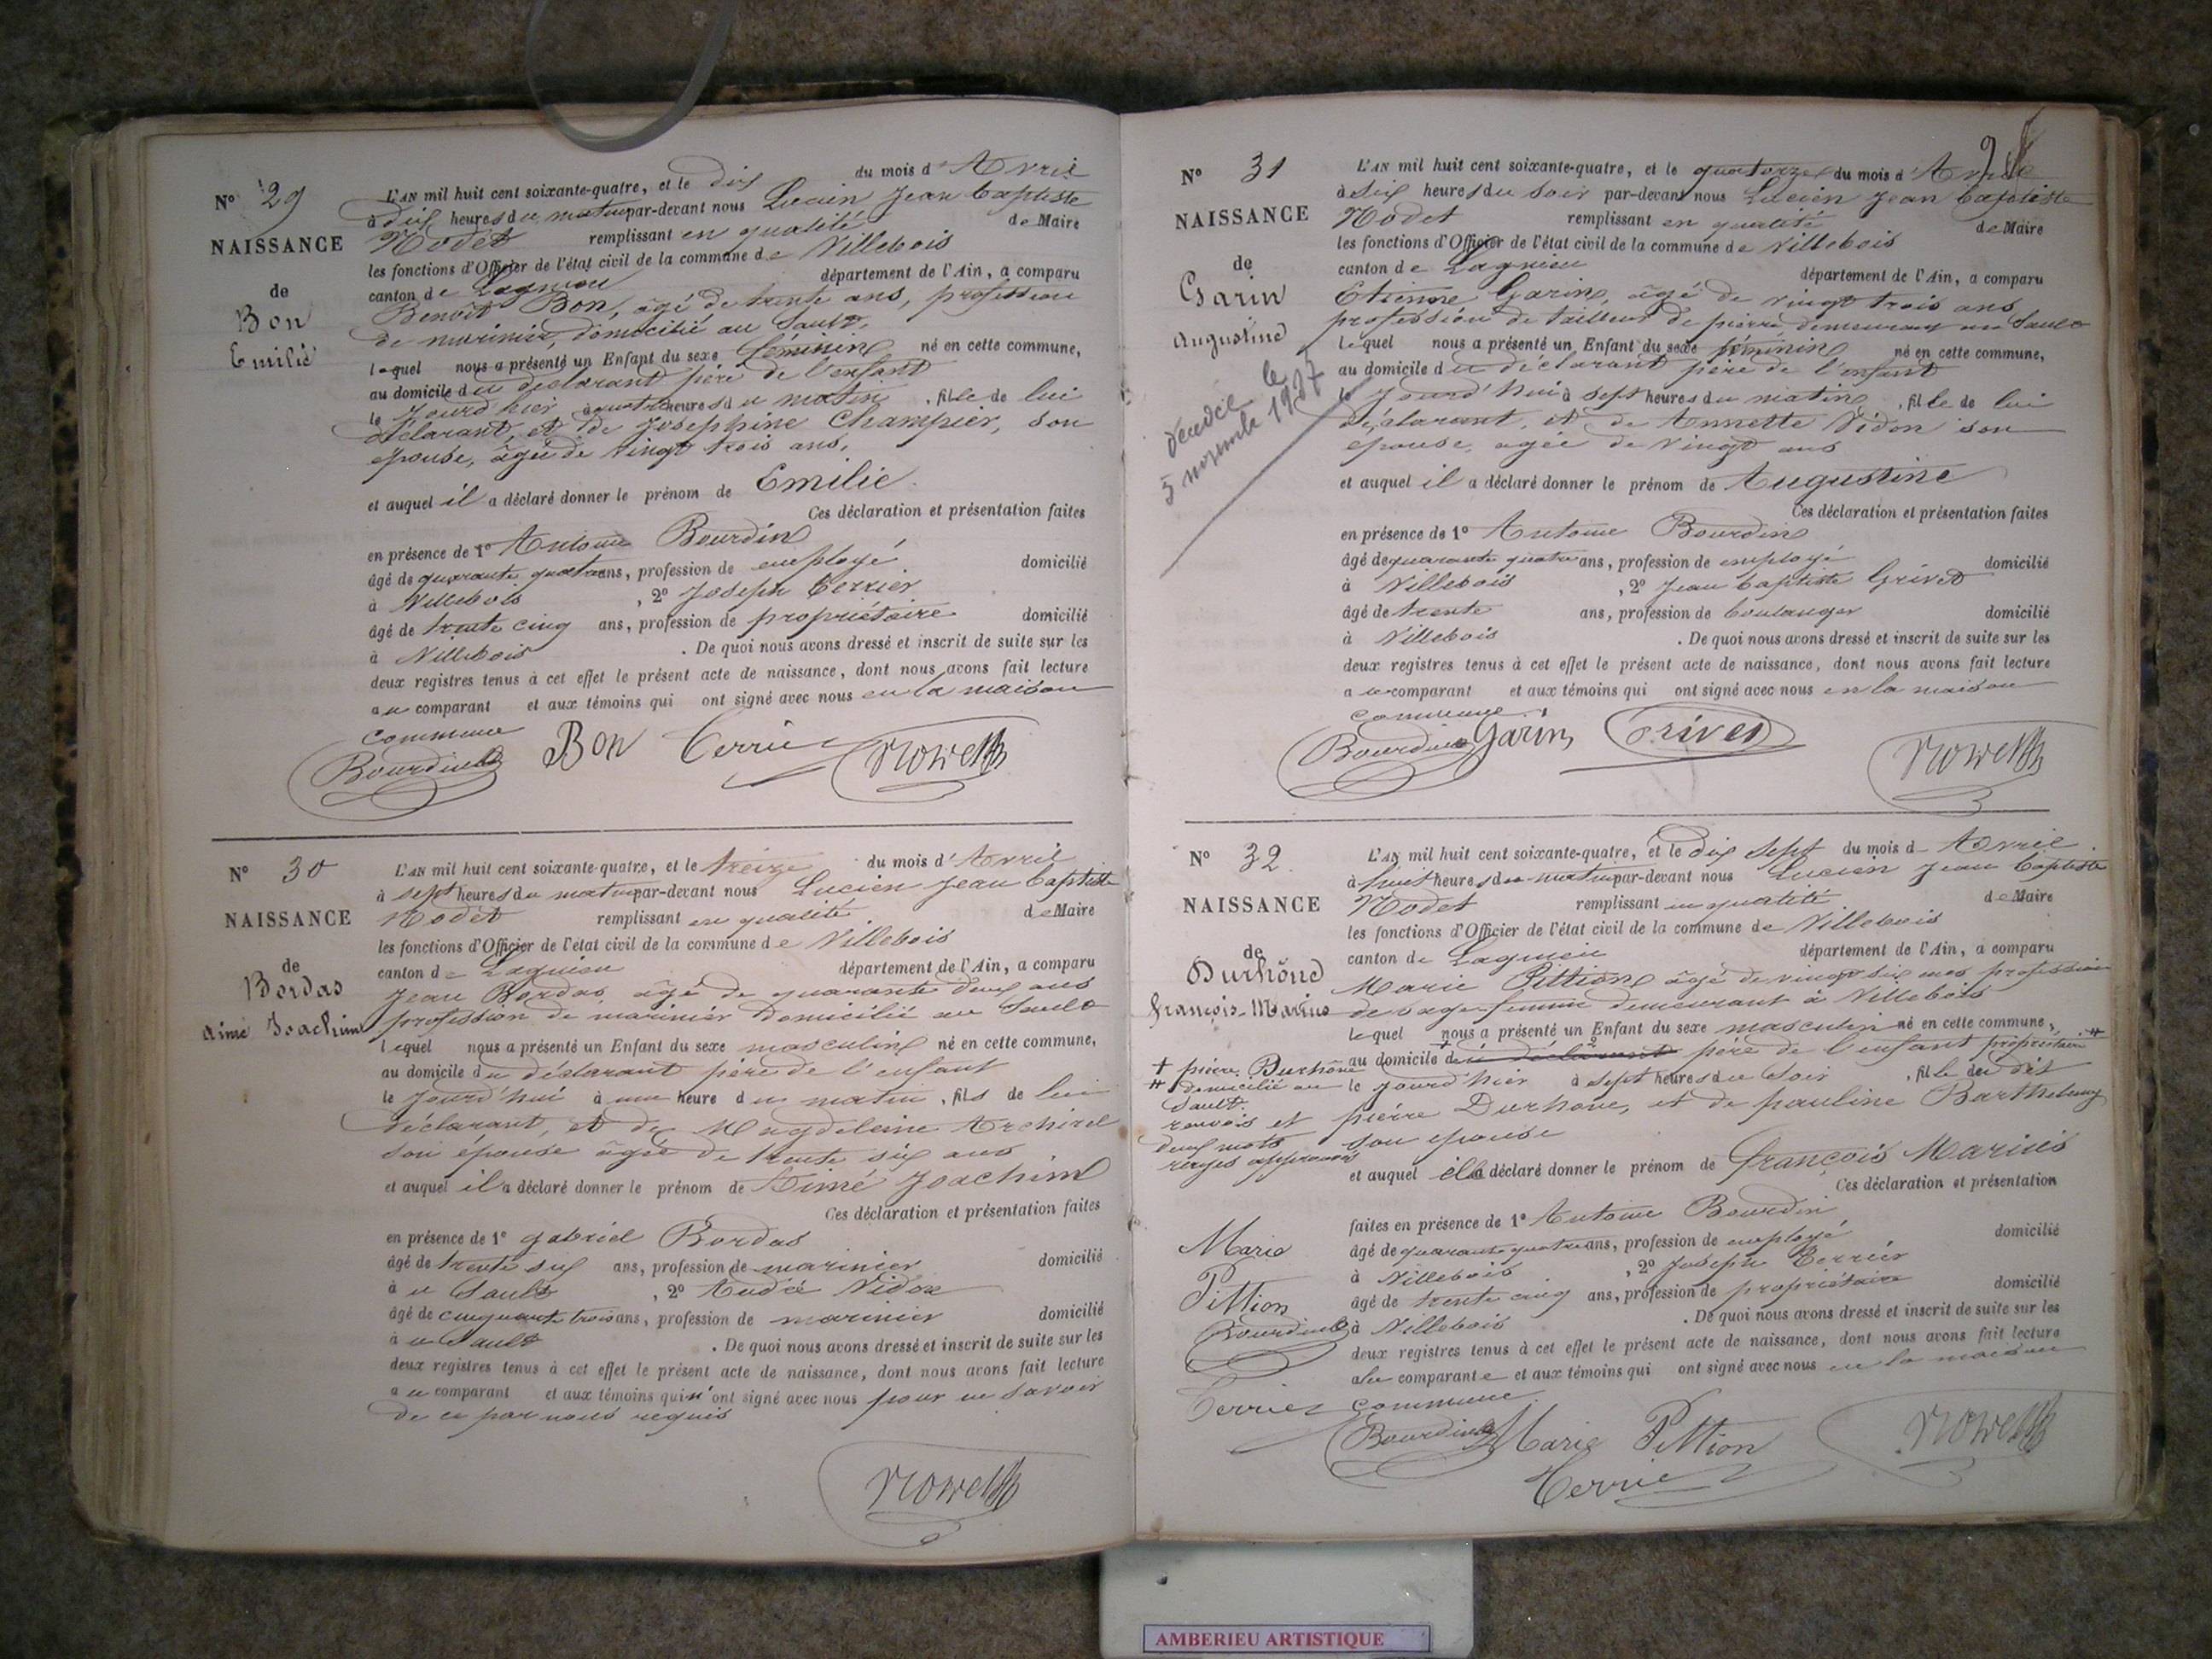 N° 29
NAISSANCE
de
Bon
Emilie
L'AN mil huit cent soixante-quatre, et le dix du mois d'Avril
à dix heures du matin par-devant nous Lucien Jean Baptiste
Rodet remplissant en qualité de Maire
les fonctions d'Officier de l'état civil de la commune de Villebois
canton de Lagnieu département de l'Ain, a comparu
Benoît Bon, âgé de trente ans, profession
de marinier, domicilié au Sault,
lequel nous a présenté un Enfant du sexe féminin né en cette commune,
au domicile du déclarant père de l'enfant
le jourd'hier à quatre heures du matin, fille de lui
déclarant, et de Josephine Champier, son
épouse, âgée de vingt trois ans,
et auquel il a déclaré donner le prénom de Emilie.
Ces déclaration et présentation faites
en présence de 1° Antoine Bourdin
âgé de quarante quatre ans, profession de employé domicilié
à Villebois, 2° Joseph Terrier
âgé de trente cinq ans, profession de propriétaire domicilié
à Villebois. De quoi nous avons dressé et inscrit de suite sur les
deux registres tenus à cet effet le présent acte de naissance, dont nous avons fait lecture
au comparant et aux témoins qui ont signé avec nous en la maison
commune
Bourdin Bon Terrier
N° 30
NAISSANCE
de
Bordas
Aimé Joachim
L'AN mil huit cent soixante-quatre, et le treize du mois d'Avril
à sept heures du matin par-devant nous Lucien Jean Baptiste
Rodet remplissant en qualité de Maire
les fonctions d'Officier de l'état civil de la commune de Villebois
canton de Lagnieu département de l'Ain, a comparu
Jean Bordas âgé de quarante deux ans
profession de marinier domicilié au Sault
lequel nous a présenté un Enfant du sexe masculin né en cette commune,
au domicile du déclarant père de l'enfant
le jourd'hui à une heure du matin, fils de lui
déclarant, et de Magdeleine Archirel
son épouse âgée de trente six ans
et auquel il a déclaré donner le prénom de Aimé Joachim
Ces déclaration et présentation faites
en présence de 1° gabriel Bordas
âgé de trente six ans, profession de marinier domicilié
à u Sault, 2° André Vidon
âgé de cinquante trois ans, profession de marinier domicilié
à u Sault. De quoi nous avons dressé et inscrit de suite sur les
deux registres tenus à cet effet le présent acte de naissance, dont nous avons fait lecture
au comparant et aux témoins qui n'ont signé avec nous pour ne savoir
de ce par nous requis
N° 31
NAISSANCE
de
Garin
Augustine
décédée le
5 novembre 1937
L'AN mil huit cent soixante-quatre, et le quatorze du mois d'Avril
à six heures du soir par-devant nous Lucien Jean Baptiste
Rodet remplissant en qualité de Maire
les fonctions d'Officier de l'état civil de la commune de Villebois
canton de Lagnieu département de l'Ain, a comparu
Etienne Garin, âgé de vingt trois ans
profession de tailleur de pierre demeurant au Sault
lequel nous a présenté un Enfant du sexe féminin né en cette commune,
au domicile du déclarant père de l'enfant
le jourd'hui à sept heures du matin, fille de lui
déclarant, et de Annette Vidon son
épouse, agée de vingt ans
et auquel il a déclaré donner le prénom de Augustine
Ces déclaration et présentation faites
en présence de 1° Antoine Bourdin
âgé de quarante quatre ans, profession de employé domicilié
à Villebois, 2° Jean Baptiste Grivet
âgé de trente ans, profession de boulanger domicilié
à Villebois. De quoi nous avons dressé et inscrit de suite sur les
deux registres tenus à cet effet le présent acte de naissance, dont nous avons fait lecture
au comparant et aux témoins qui ont signé avec nous en la maison
commune.
Bourdin Garin Grivet
N° 32
NAISSANCE
de
Durhône
françois-Marius
L'AN mil huit cent soixante-quatre, et le dix sept du mois d'Avril
à huit heures du matin par-devant nous Lucien Jean Baptiste
Rodet remplissant en qualité de Maire
les fonctions d'Officier de l'état civil de la commune de Villebois
canton de Lagnieu département de l'Ain, a comparu
Marie Pittion âgé de vingt six ans profession
de sage-femme demeurant à Villebois
lequel nous a présenté un Enfant du sexe masculin né en cette commune,
au domicile du déclarant père de l'enfant propriétaire #
le jourd'hier à sept heures du soir, fille du dit
pierre Durhone, et de pauline Barthelemy
son épouse
+ pierre Durhône
# domicilié au
Sault.
renvois et
deux mots
rayés approuvés
et auquel elle a déclaré donner le prénom de françois Marius
Ces déclaration et présentation
faites en présence de 1° Antoine Bourdin
âgé de quarante quatre ans, profession de employé domicilié
à Villebois, 2° Joseph Terrier
âgé de trente cinq ans, profession de propriétaire domicilié
à Villebois. De quoi nous avons dressé et inscrit de suite sur les
deux registres tenus à cet effet le présent acte de naissance, dont nous avons fait lecture
à la comparante et aux témoins qui ont signé avec nous en la maison
commune.
Marie
Pittion
Bourdin
Terrier
Bourdin Marie Pittion
Terrier
AMBERIEU ARTISTIQUE